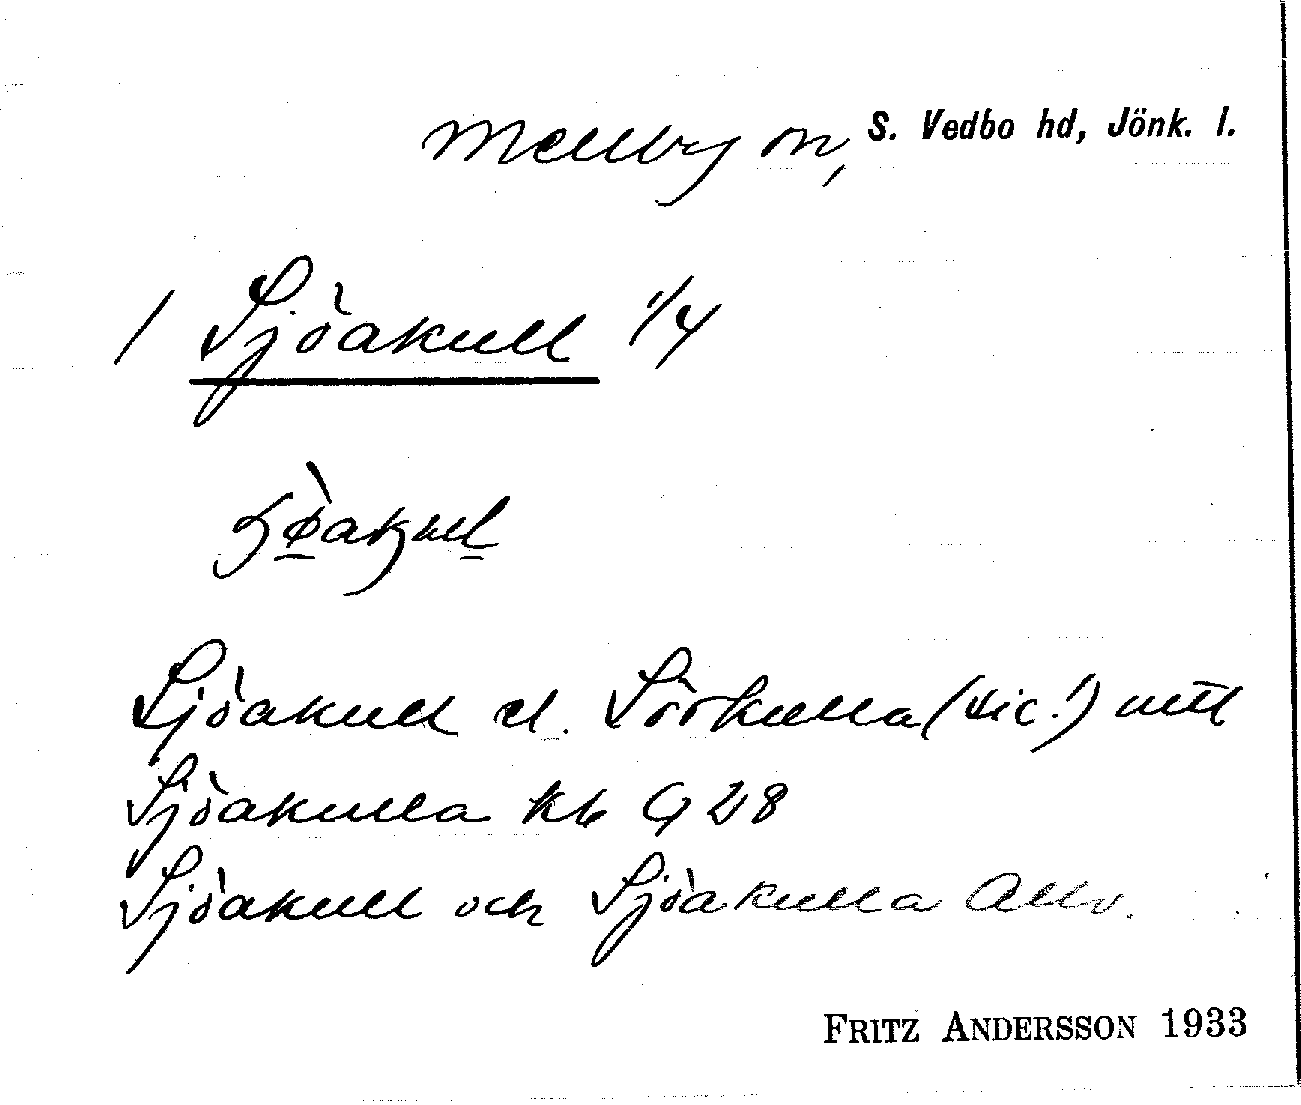 Mellby sn, S. Vedbo hd, Jönk. l.
1 Sjöakull 1/4
Sjöakull el. Sörkulla (sic!) nttl
Sjöakulla kb G 28
Sjöakull och Sjöakulla Allv.
FRITZ ANDERSSON 1933